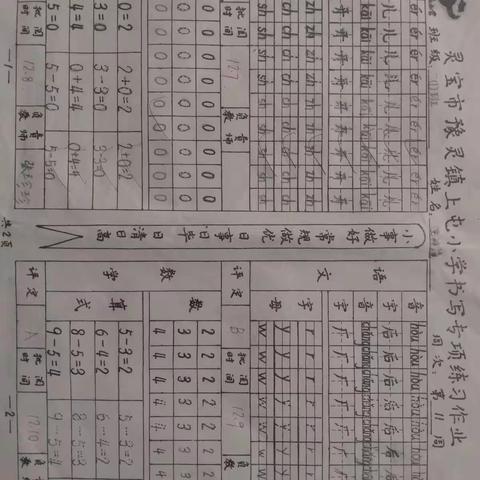 灵宝市豫灵镇上屯小学书写专项练习作业
班级： 姓名： 周次：第 11 周
ér ér ér ér ér ér ér
儿 儿 儿 儿 儿 儿 儿
kāi kāi kāi kāi kāi kāi kāi
开 开 开 开 开 开 开
zh zh zh zh zh zh zh
ch ch ch ch ch ch ch
sh sh sh sh sh sh sh
12.7 负责教师
0 0 0 0 0 0 0
0 0 0 0 0 0 0
0 0 0 0 0 0 0
+0=2 2+0=2 2+0=2
3=0 3-3=0 3-3=0
4=4 0+4=4 0+4=4
5=0 5-5=0 5-5=0
批阅时间 12.8 负责教师
—1—
共2页
小事做好 常规做优 日事日毕 日清日高
语文
音 hòu hòu hòu hòu hòu hòu
字 后 后 后 后 后 后
音 chǎng chǎng chǎng chǎng chǎng
字 厂 厂 厂 厂 厂 厂
字母 r r r r r r
y y y y y y
w w w w w w
评定 B 批阅时间 12.9 负责教
数学
数 2 2 2 2 2 2
3 3 3 3 3 3
4 4 4 4 4 4
算式 5-3=2 5-3=2
6-4=2 6-4=2
8-5=3 8-5=3
9-5=4 9-5=4
评定 A 批阅时间 12.10 负责教
—2—